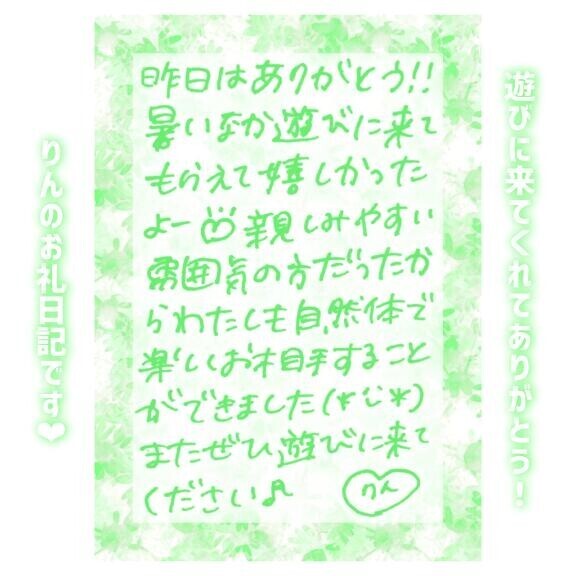 遊びに来てくれてありがとう!
昨日はありがとう!!
暑いなか遊びに来て
もらえて嬉しかった
よー 親しみやすい
雰囲気の方だったか
らわたしも自然体で
楽しくお相手すること
ができました(*´ `*)
またぜひ遊びに来て
ください♪
りん
りんのお礼日記です❤